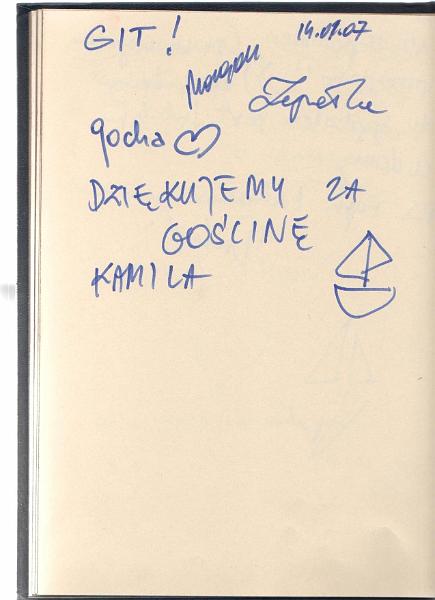 GIT! 14.09.07
gocha
DZIĘKUJEMY ZA
GOŚCINĘ
KAMILA